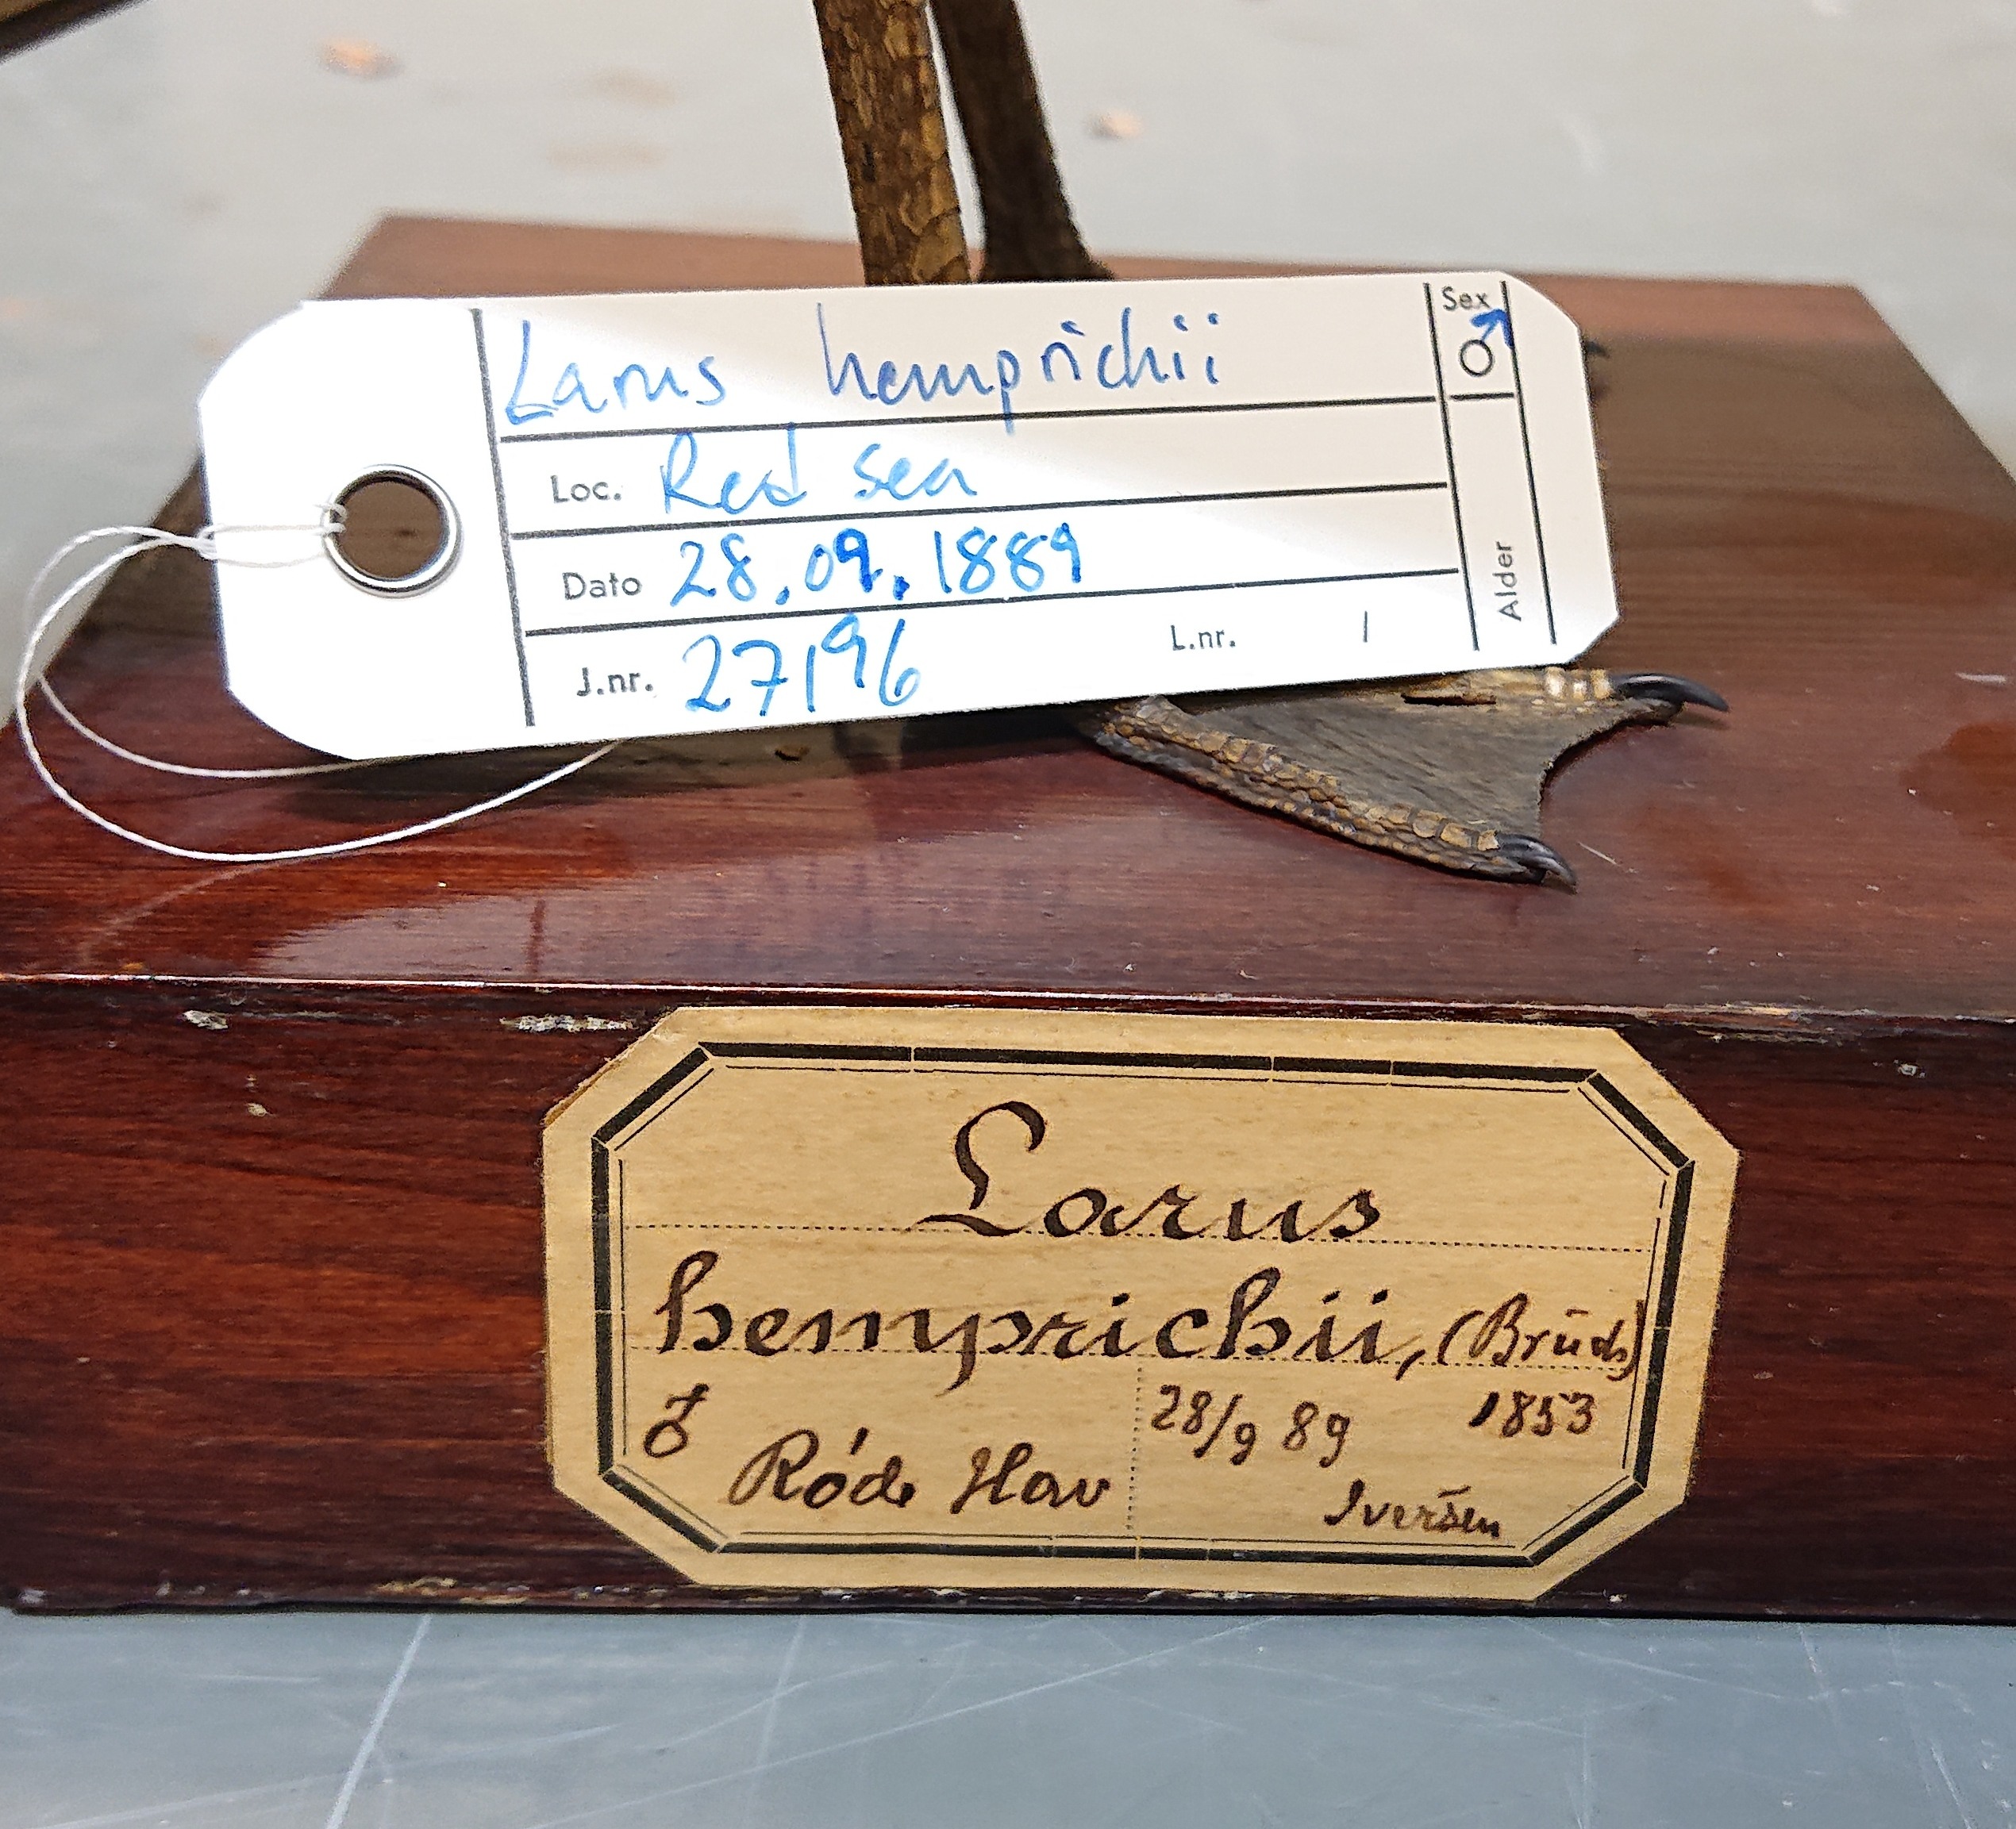 Larus hemprichii
Sex ♂
Loc. Red sea
Dato 28.09.1889
J.nr. 27196 L.nr. /
Alder
Larus
hemprichii, (Brüch)
♂ 28/9 89 1853
Röde Hav Iversen